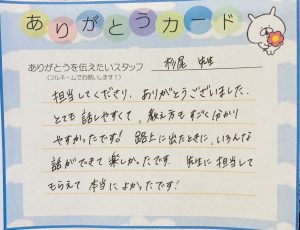 ありがとうカード
ありがとうを伝えたいスタッフ
(フルネームでお願いします！)
杉尾 先生
担当してくださり、ありがとうございました。
とても話しやすくて、教え方もすごく分かり
やすかったです! 路上に出たときに、いろんな
話ができて楽しかったです。 先生に担当して
もらえて本当によかったです!